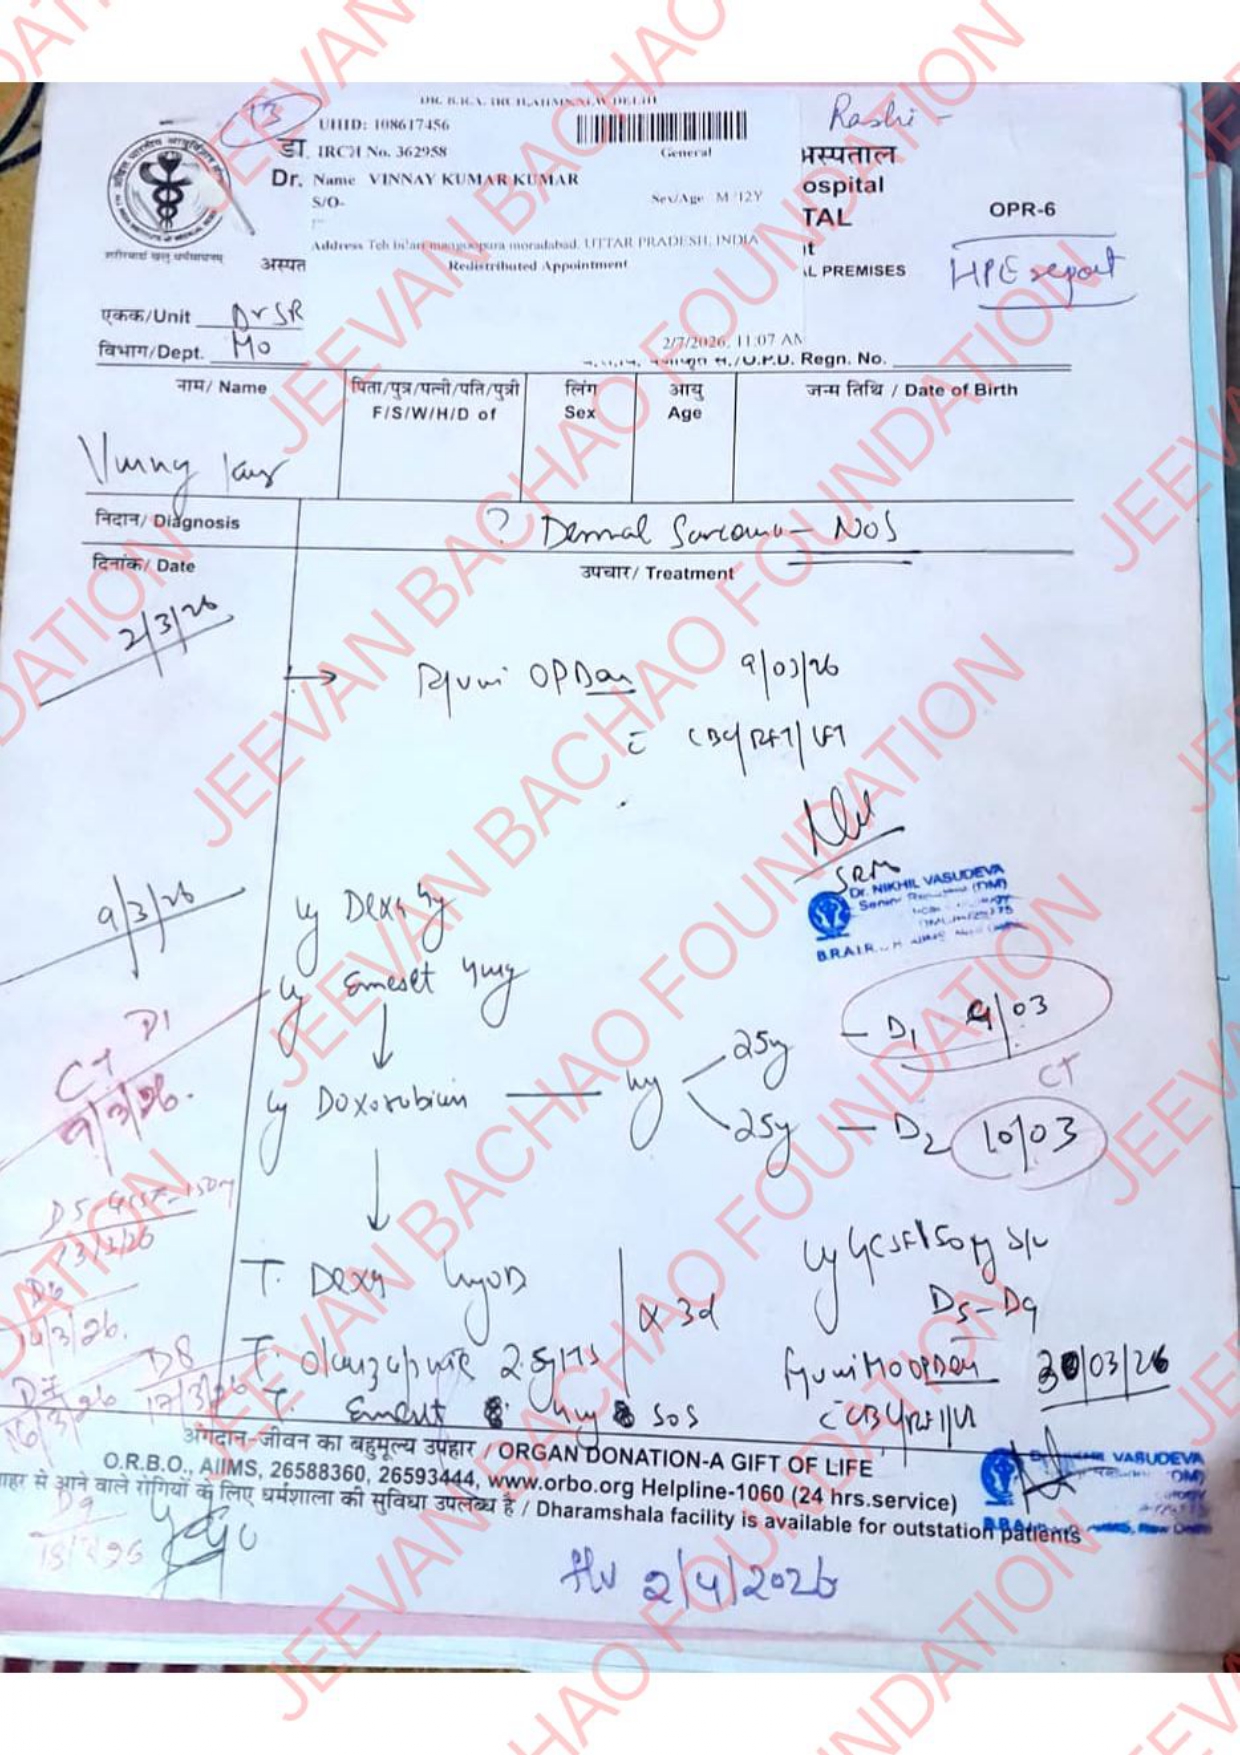 DR. B.R.A. IRCH, AIIMS, NEW DELHI
13
UHID: 108617456
Rashi -
डा. IRCH No. 362958
General
अस्पताल
Dr. Name VINNAY KUMAR KUMAR
ospital
S/O-
Sex/Age M /12Y
TAL
OPR-6
Address Teh bilari mangoopura moradabad, UTTAR PRADESH, INDIA
शरीरमाद्यं खलु धर्मसाधनम्
अस्पत
Redistributed Appointment
L PREMISES
HPE report
एकक/Unit Dr SR
विभाग/Dept. MO
2/7/2026, 11:07 AM
/O.P.D. Regn. No.
नाम/ Name
पिता/पुत्र/पत्नी/पति/पुत्री
F/S/W/H/D of
लिंग
Sex
आयु
Age
जन्म तिथि / Date of Birth
निदान/ Diagnosis
? Dermal Sarcoma - NOS
दिनांक/ Date
उपचार/ Treatment
2/3/26
OPD on 9/03/26
c CBC/RFT/LFT
SRM
Dr. NIKHIL VASUDEVA
9/3/26
Dexa
Emeset
D1
C1
9/3/26
Doxorubicin
25mg — D1 9/03
C1
25mg — D2 10/03
D5 GCSF-150
13/3/26
D6
14/3/26.
T. Dexa
T. Olanzapine 2.5mg HS
x 3d
T Emeset SOS
GCSF 150 s/c
D5-D9
MO OPD on 30/03/26
D8
17/3/26
D7
16/3/26
अंगदान-जीवन का बहुमूल्य उपहार / ORGAN DONATION-A GIFT OF LIFE
O.R.B.O., AIIMS, 26588360, 26593444, www.orbo.org Helpline-1060 (24 hrs.service)
बाहर से आने वाले रोगियों के लिए धर्मशाला की सुविधा उपलब्ध है / Dharamshala facility is available for outstation patients
VASUDEVA
D9
18/3/26
2/4/2026
JEEVAN BACHAO FOUNDATION